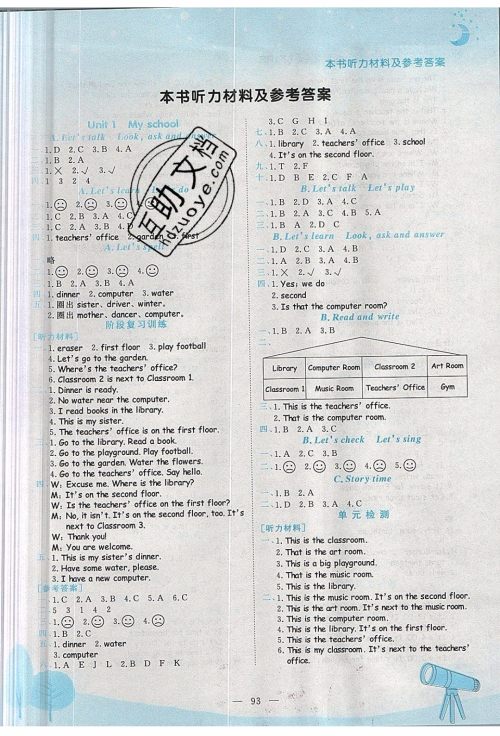 本书听力材料及参考答案
本书听力材料及参考答案
Unit 1 My school
A. Let's talk Look, ask and answer
一、1. D 2. C 3. B 4. A
二、1. B 2. A
三、1. × 2. √ 3. √
四、1 3 2 4
A. Let's learn do
一、1. 2. 3. 4.
二、1. C 2. B 3. A 4. C
三、1. C 2. A 3. B 4. D
四、1. teachers' office 2. garden first
A. Let's spell
一、略
二、1. 2. 3. 4.
三、1. B 2. A 3. B 4. A
四、1. dinner 2. computer 3. water
五、1. 圈出 sister、driver、winter。
2. 圈出 mother、dancer、computer。
阶段复习训练
[听力材料]
一、1. eraser 2. first floor 3. play football
4. Let's go to the garden.
5. Where's the teachers' office?
6. Classroom 2 is next to Classroom 1.
二、1. Dinner is ready.
2. No water near the computer.
3. I read books in the library.
4. This is my sister.
5. The teachers' office is on the first floor.
三、1. Go to the library. Read a book.
2. Go to the playground. Play football.
3. Go to the garden. Water the flowers.
4. Go to the teachers' office. Say hello.
四、W: Excuse me. Where is the library?
M: It's on the second floor.
W: Is the teachers' office on the first floor?
M: No, it isn't. It's on the second floor, too. It's
next to Classroom 3.
W: Thank you!
M: You are welcome.
五、1. This is my sister's dinner.
2. Have some water, please.
3. I have a new computer.
[参考答案]
一、1. C 2. A 3. B 4. C 5. A 6. C
二、5 3 1 4 2
三、1. 2. 3. 4.
四、1. B 2. C
五、1. dinner 2. water
3. computer
六、1. A E J L 2. B D F K
3. C G H I
七、1. B 2. C 3. A 4. A
八、1. library 2. teachers' office 3. school
4. It's on the second floor.
九、1. T 2. F
十、1. D B E 2. C F A
B. Let's talk Let's play
一、1. B 2. D 3. A 4. C
二、1. B 2. A 3. C 4. B 5. A
三、1. B A 2. D C
B. Let's learn Look, ask and answer
一、1. D 2. C 3. A 4. B
二、1. A 2. B 3. A 4. B
三、1. × 2. √ 3. √
四、1. Yes; we do
2. second
3. Is that the computer room?
B. Read and write
一、1. B 2. A 3. B
二、
Library Computer Room Classroom 2 Art Room
Classroom 1 Music Room Teachers' Office Gym
三、1. This is the teachers' office.
2. That is the computer room.
四、1. B 2. A 3. C
B. Let's check Let's sing
一、1. A 2. C 3. B
二、1. 2. 3. 4. 5.
C. Story time
一、1. B 2. A
二、1. D 2. B 3. A 4. C
单元检测
[听力材料]
一、1. This is the classroom.
2. That is the art room.
3. This is a big playground.
4. That is the music room.
5. This is the library.
二、1. This is the music room. It's on the second floor.
2. This is the art room. It's next to the music room.
3. This is the computer room.
4. This is the library. It's on the first floor.
5. This is the teachers' office.
6. This is my classroom. It's next to the teachers'
office.
93
互助文档
hdzuoye.com